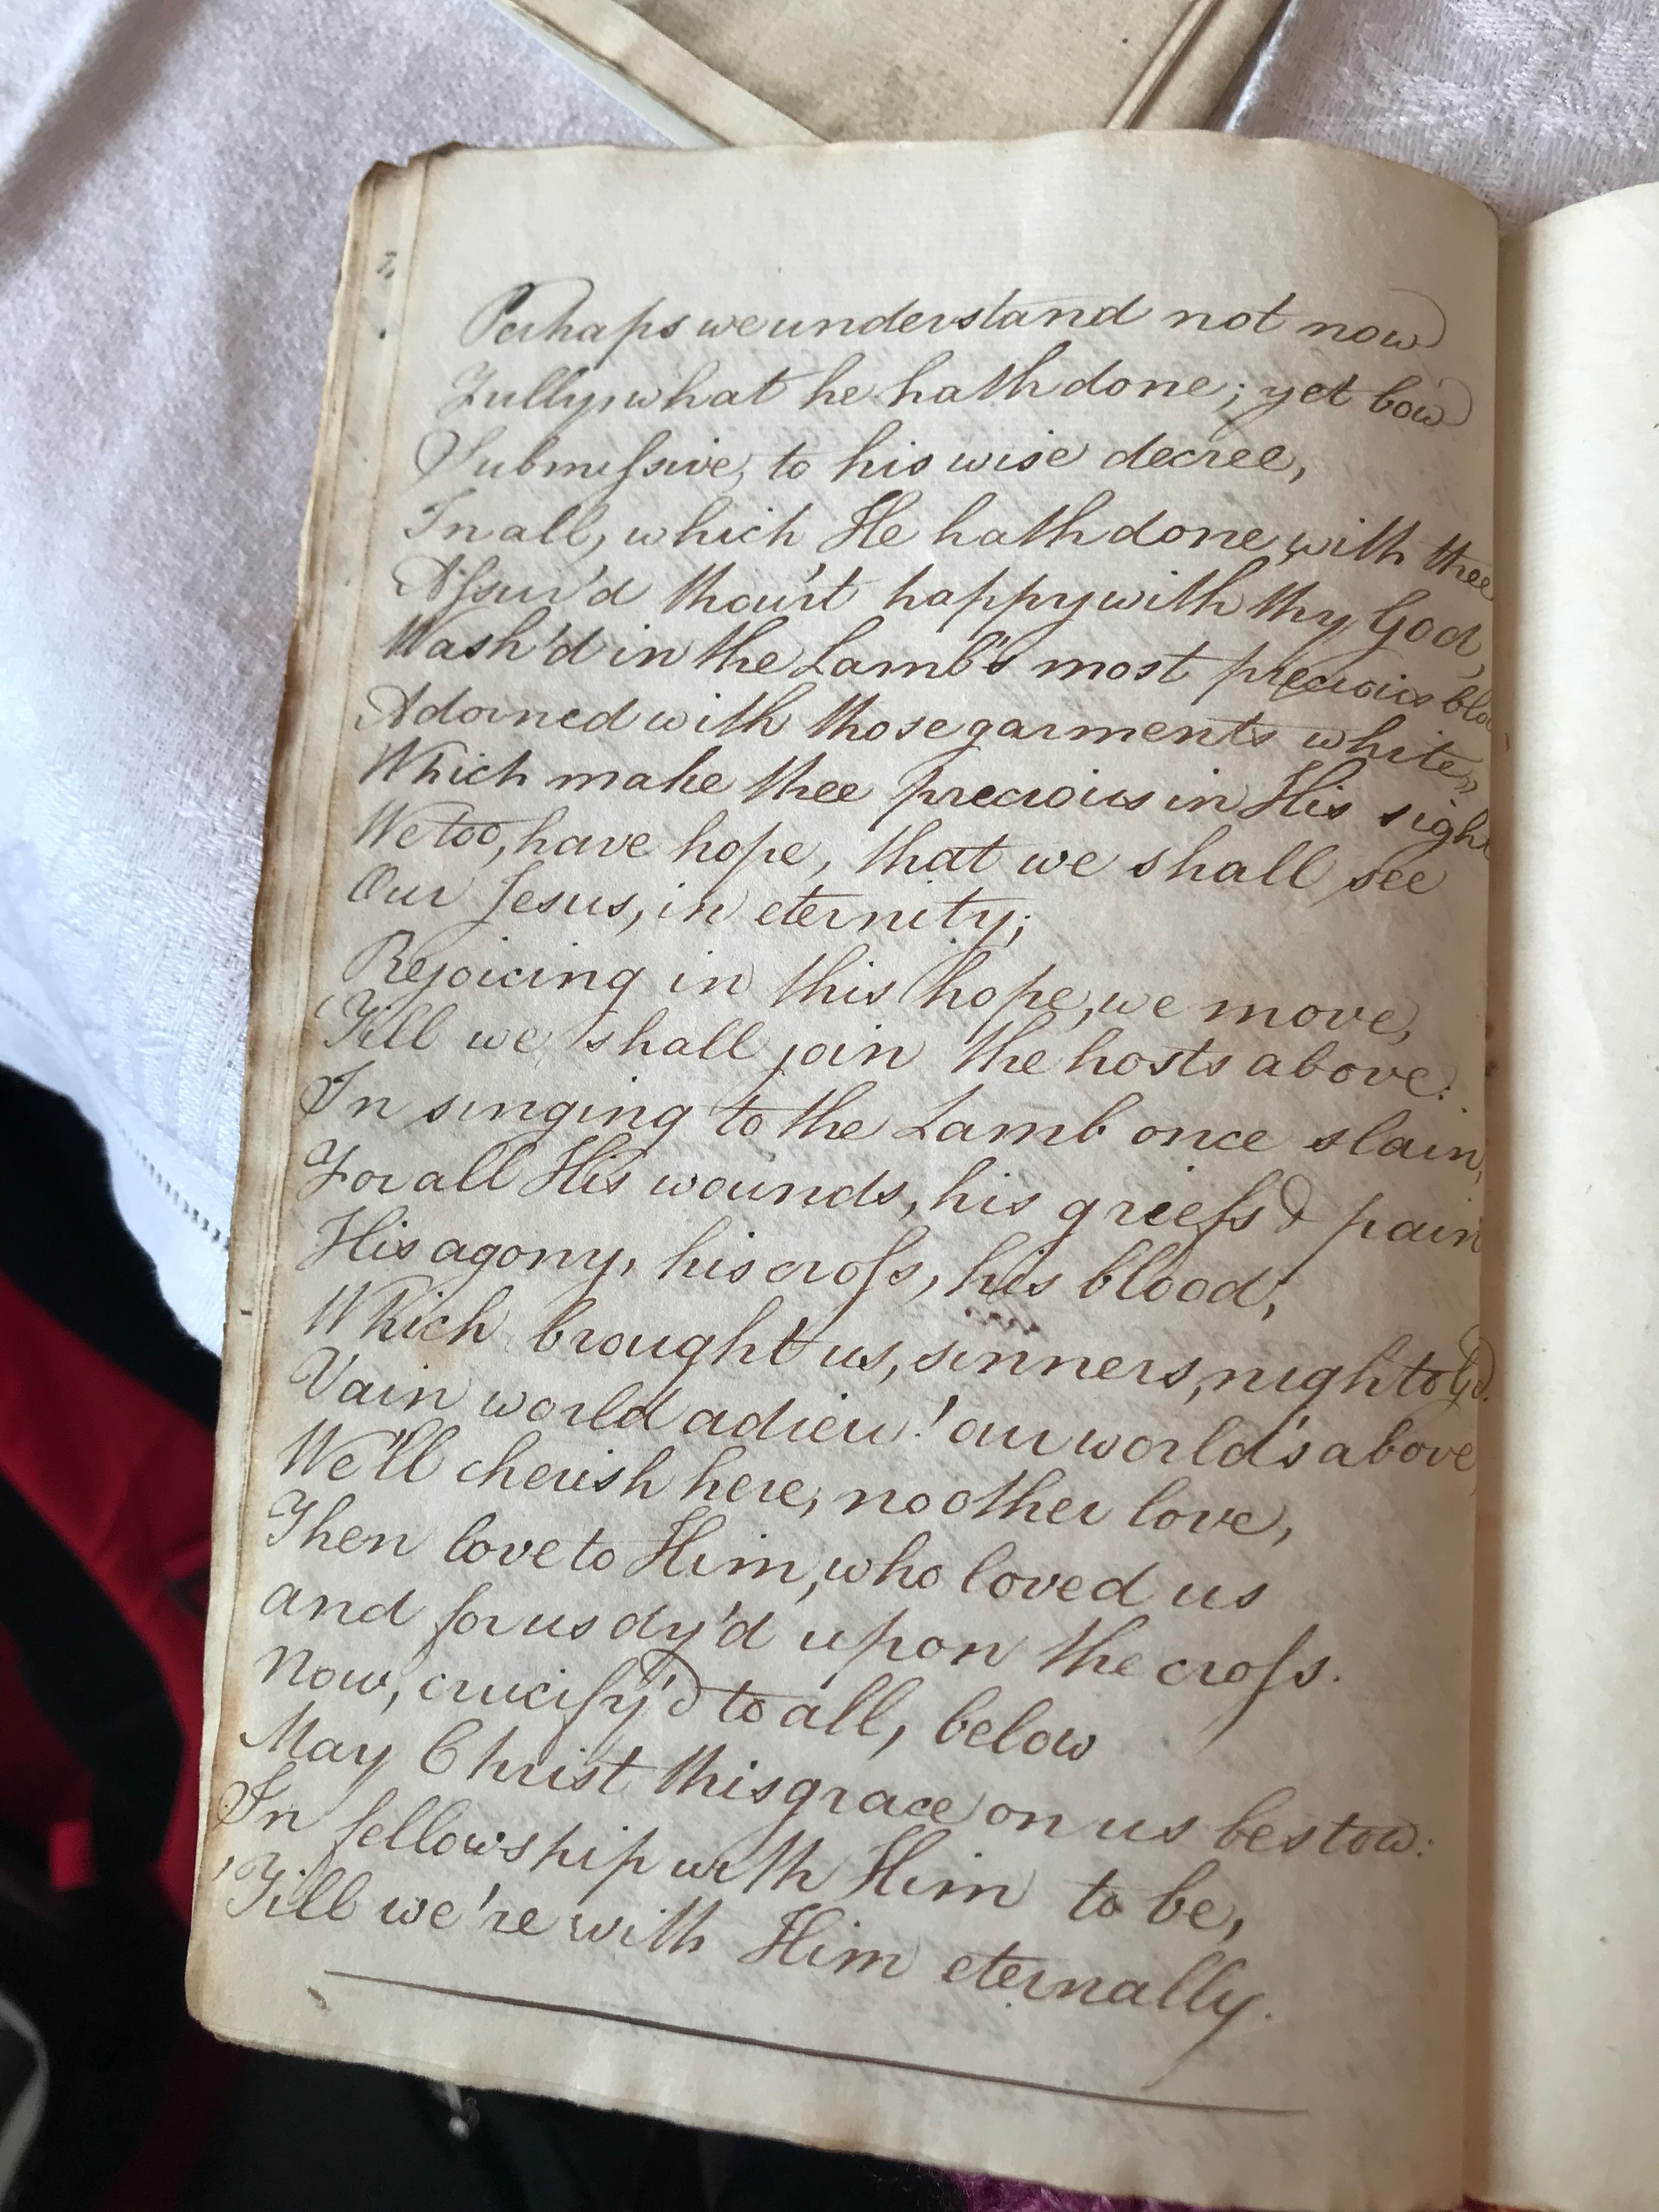 Perhaps we understand not now
Fully, what he hath done; yet bow
Submissive, to his wise decree,
In all, which He hath done, with thee
Assur'd thou'rt happy with thy God,
Wash'd in the Lamb's most precious bloo
Adorned with those garments white,
Which make thee precious in His sight
We too, have hope, that we shall see
Our Jesus, in eternity;
Rejoicing in this hope, we move,
'Till we shall join the hosts above:
In singing to the Lamb once slain,
For all His wounds, his griefs & pain
His agony, his cross, his blood;
Which brought us, sinners, nigh to God.
Vain world adieu! our world's above
We'll cherish here, no other love,
Then love to Him, who loved us
and for us dy'd upon the cross.
Now, crucify'd to all, below
May Christ this grace on us bestow:
In fellowship with Him to be,
'Till we're with Him eternally.